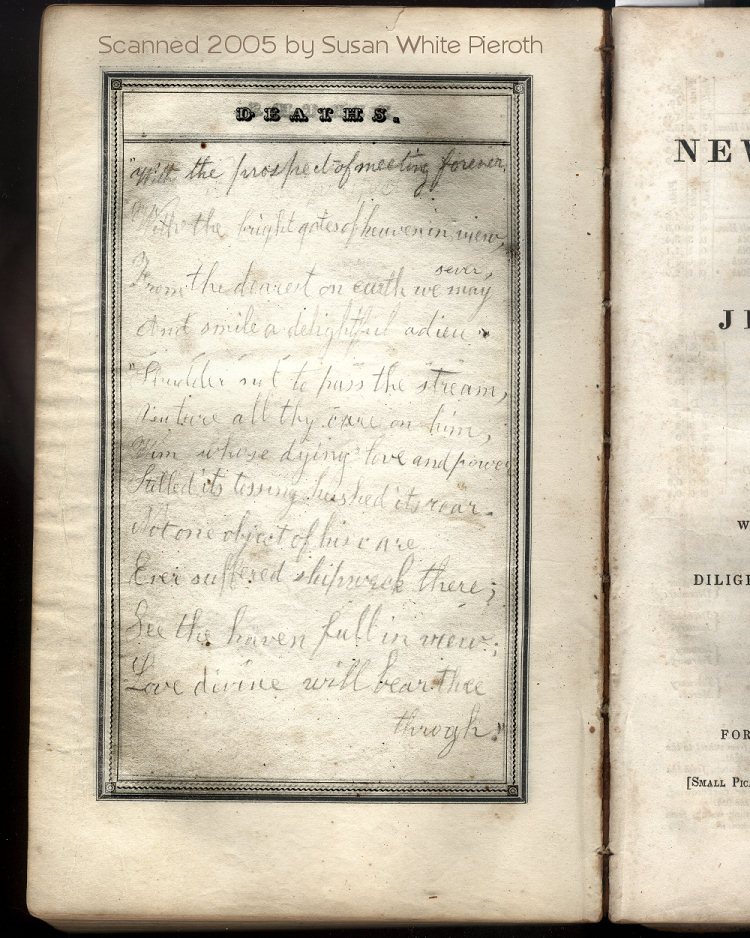 Scanned 2005 by Susan White Pieroth
DEATHS.
"With the prospect of meeting forever,
With the bright gates of heaven in view,
From the dearest on earth we may
sever,
And smile a delightful adieu.
"Shudder not to pass the stream,
Venture all thy care on him,
Him whose dying love and power
Stilled its tossing hushed its roar.
Not one object of his care
Ever suffered shipwreck there;
See the haven full in view;
Love divine will bear thee
throgh."
NEW
JE
W
DILIGE
FOR
[SMALL PIC